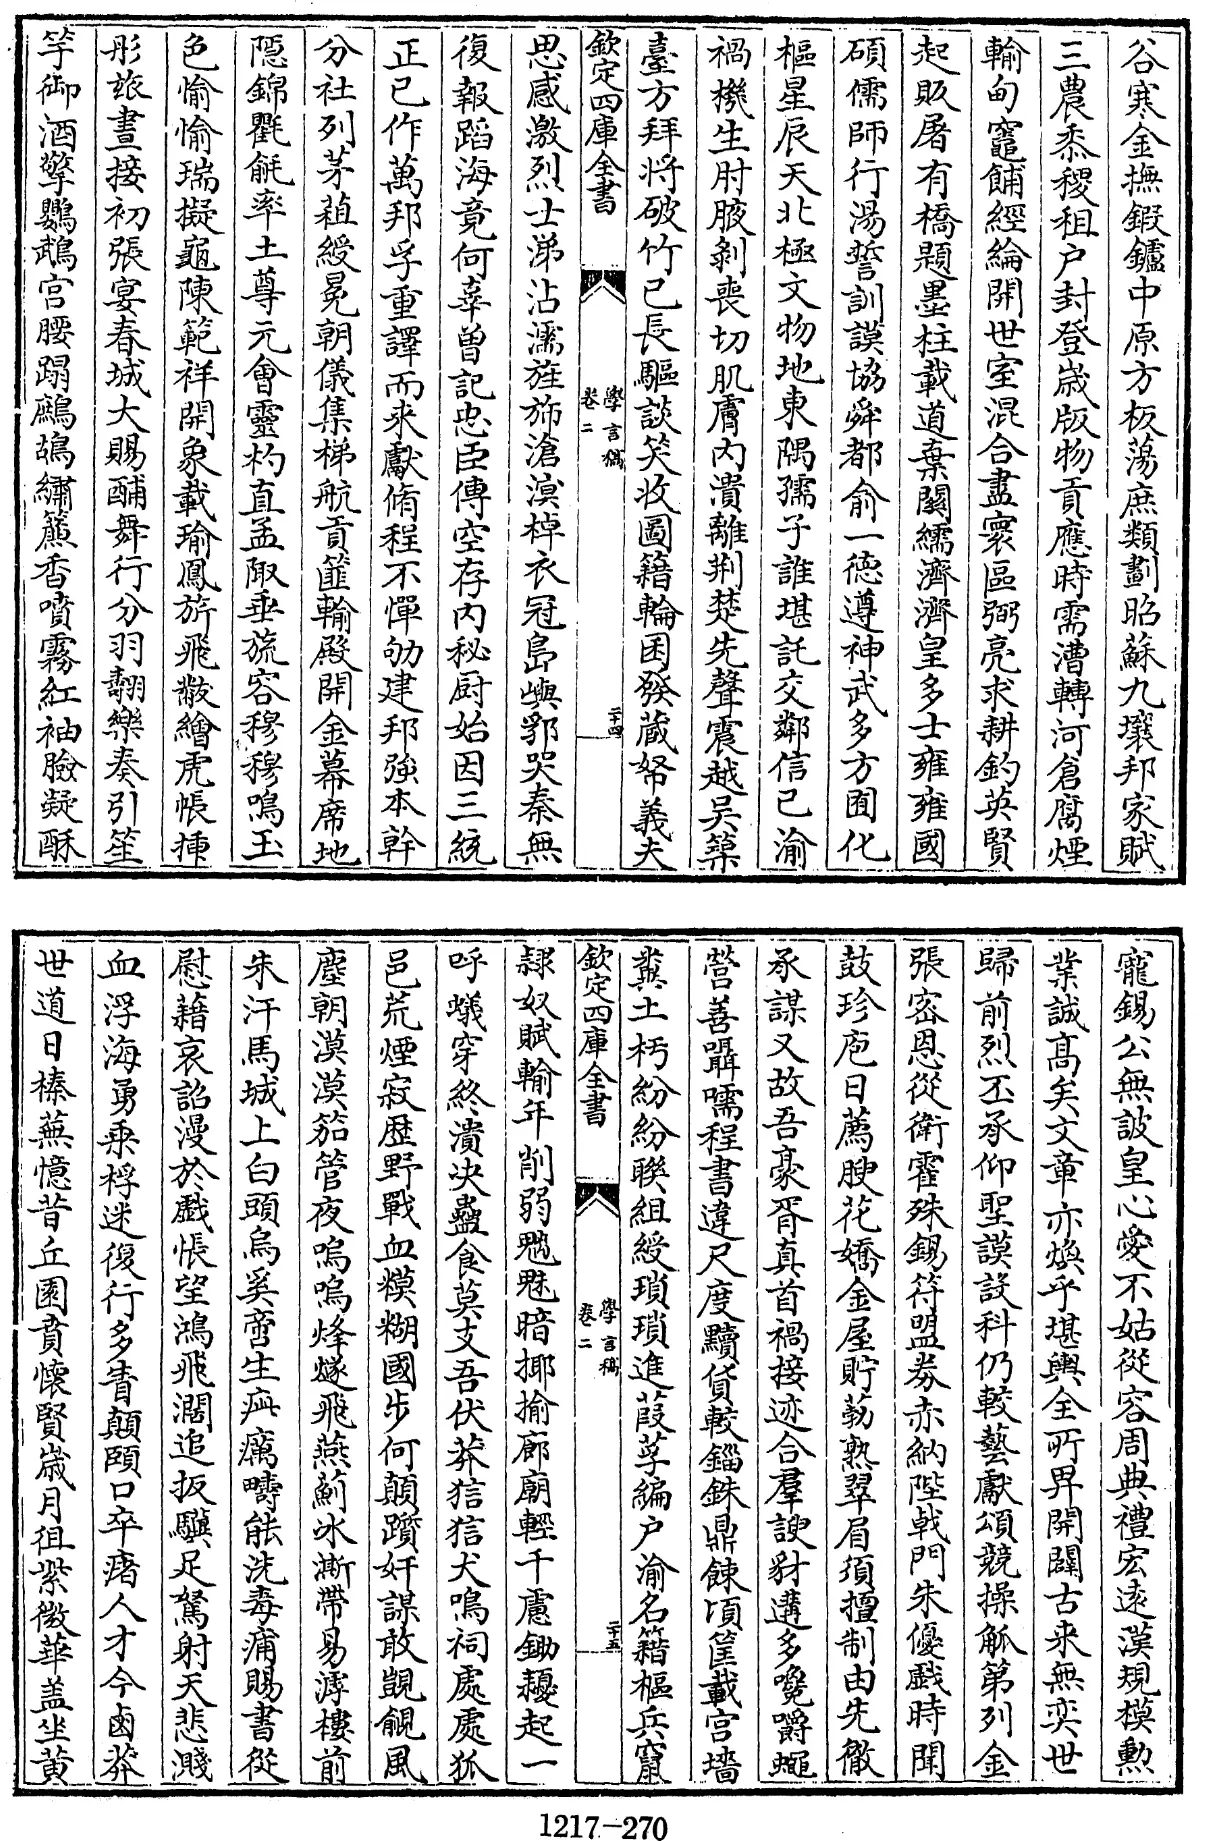 谷寒金撫鍜鑪中原方板蕩庶類劃昭蘇九壤邦家賦
三農黍稷租户封登嵗版物貢應時需漕轉河倉腐煙
輸甸竈餔經綸開世室混合盡寰區弼亮求耕釣英賢
起販屠有橋題墨柱載道棄闗繻濟濟皇多士雍雍國
碩儒師行湯誓訓謨協舜都俞一徳遵神武多方囿化
樞星辰天北極文物地東隅孺子誰堪託交鄰信已渝
禍機生肘腋剝喪切肌膚内潰離荆楚先聲震越吴築
臺方拜將破竹已長驅談笑收圖籍輪囷發蔵帑義夫
欽定四庫全書
學言稿
卷二
二十四
思感激烈士涕沾濡旌斾滄溟棹衣冠島嶼郛哭秦無
復報蹈海竟何辜曽記忠臣傳空存内秘厨始因三統
正已作萬邦孚重譯而来獻脩程不憚劬建邦強本幹
分社列茅葅綬冕朝儀集梯航貢篚輸殿開金幕席地
隠錦氍毹率土尊元會靈杓直孟陬垂旒容穆穆鳴玉
色愉愉瑞擬龜陳範祥開象載瑜鳳旂飛黻繪虎帳揷
彤旅晝接初張宴春城大賜酺舞行分羽翿樂奏引笙
竽御酒擎鸚鵡宮腰蹋鷓鴣繡簾香噴霧紅袖臉凝酥
寵錫公無詖皇心愛不姑從容周典禮宏逺漢規模勲
業誠髙矣文章亦煥乎堪輿全所畀開闢古来無奕世
歸前烈丕承仰聖謨設科仍較藝獻頌競操觚第列金
張密恩從衛霍殊錫符盟券赤納陛㦸門朱優戲時聞
鼓珍庖日薦腴花嬌金屋貯勌熟翠眉須擅制由先徹
承謀又故吾豪胥真首禍接迹合羣諛豺遘多嚵嚼蠅
營善囁嚅程書違尺度黷貨較錙銖鼎餗頃筐載宫墻
糞土杇紛紛聯組綬瑣瑣進葭莩編户渝名籍樞兵竄
欽定四庫全書
學言稿
卷二
二十五
隷奴賦輸年削弱魍魅暗揶揄廊廟輕千慮鋤耰起一
呼蟻穿終潰决蠱食莫支吾伏莽狺狺犬鳴祠處處狐
邑荒煙寂歴野戰血糢糊國步何顛躓奸謀敢覬覦風
塵朝漠漠笳管夜嗚嗚烽燧飛燕薊冰澌帶易滹樓前
朱汗馬城上白頭烏奚啻生疵癘疇能洗毒痡賜書從
慰藉哀詔漫於戲悵望鴻飛濶追扳驥足駑射天悲濺
血浮海勇乗桴迷復行多眚顛頤口卒瘏人才今鹵莽
世道日榛蕪憶昔丘園賁懐賢嵗月徂紫微華盖坐黄
1217-270